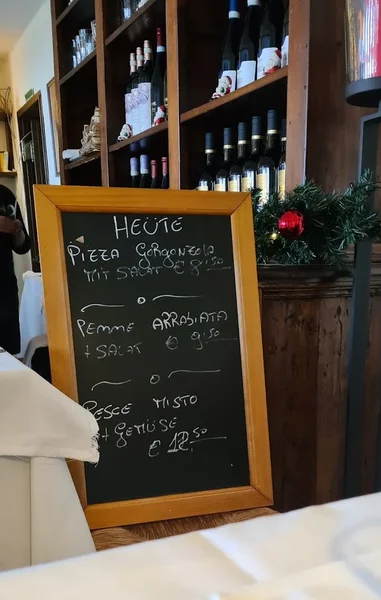 HEUTE
PIZZA GORGONZOLA
MIT SALAT € 8,50
PEMME ARRABIATA
+ SALAT € 9,50
PESCE MISTO
+ GEMÜSE
€ 12,50